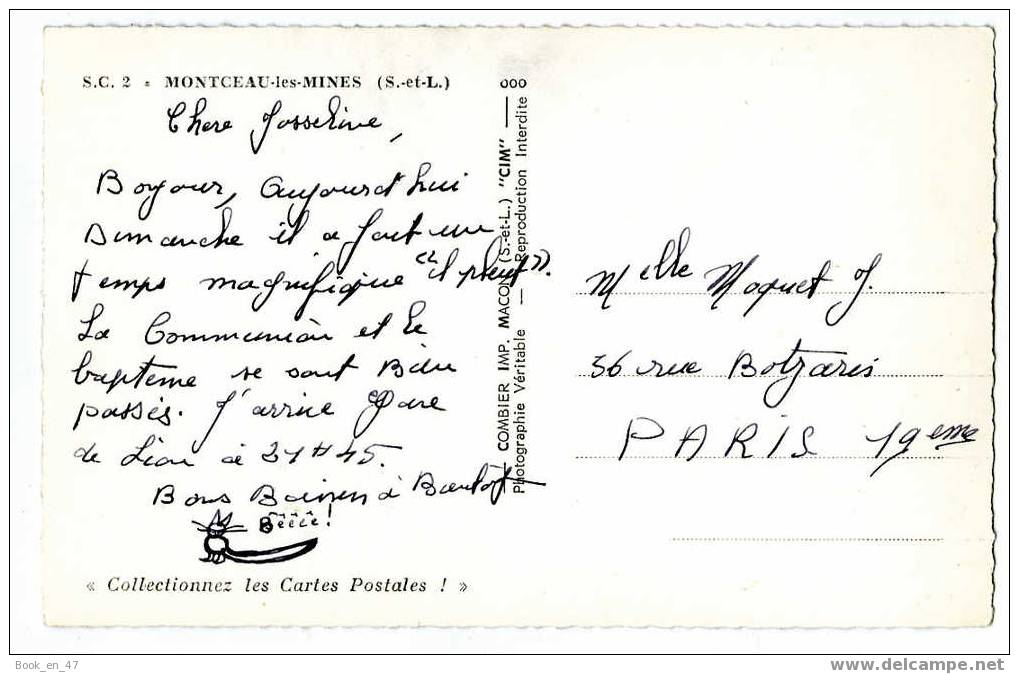 S.C. 2 - MONTCEAU-les-MINES (S.-et-L.)
Chere Josseline,
Bonjour, aujourd'hui
Dimanche il a fait un
temps magnifique "il pleut".
La Communion et le
baptème se sont Bien
passés. J'arrive Gare
de Lion à 21H45.
Bons Baisers à Bientôt
Bêêêê!
« Collectionnez les Cartes Postales ! »
COMBIER IMP. MACON (S.-et-L.) "CIM"
Photographie Véritable — Reproduction Interdite
Melle Moquet J.
36 rue Botzaris
PARIS 19eme
Book_en_47
www.delcampe.net